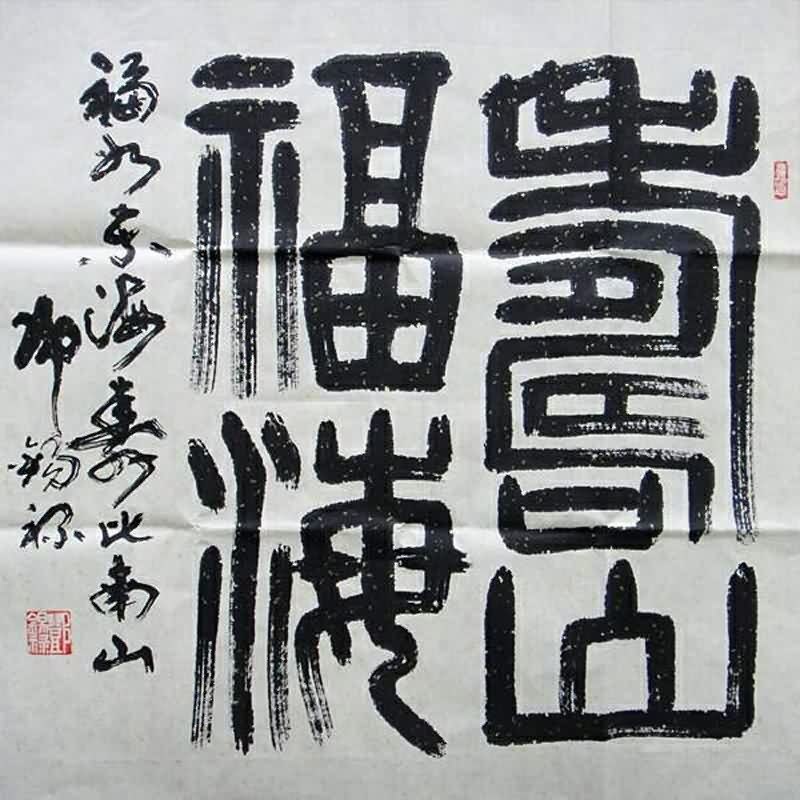 壽山
福海
福如东海壽比南山
錫祿